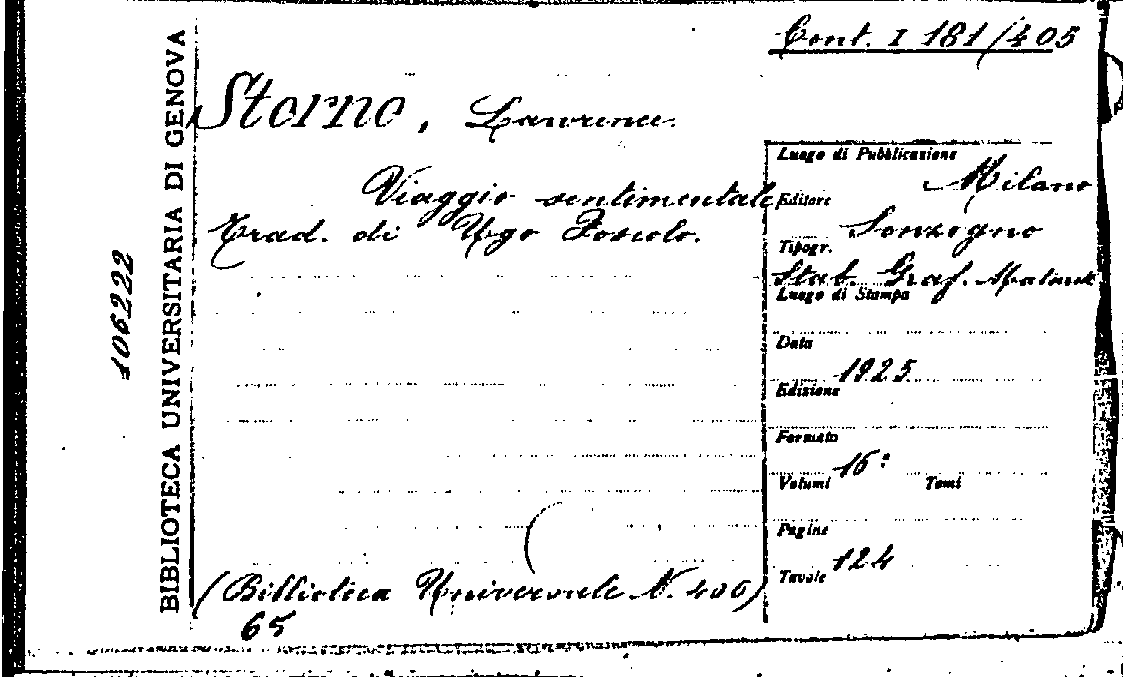 Cont. I 181/405
Sterne, Lawrence.
Viaggio sentimentale
Trad. di Ugo Foscolo.
(Biblioteca Universale N. 406)
65
Luogo di Pubblicazione
Milano
Editore
Sonzogno
Tipogr.
Stab. Graf.
Luogo di Stampa
Data
1925
Edizione
Formato
16º
Volumi Tomi
Pagine
124
Tavole
BIBLIOTECA UNIVERSITARIA DI GENOVA
106222